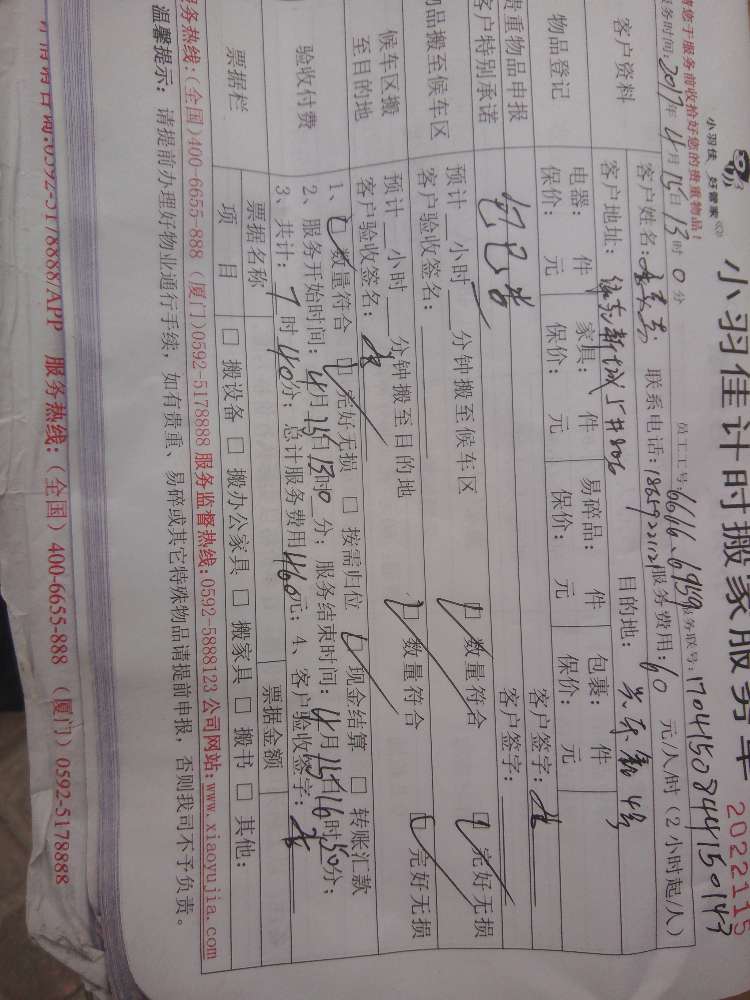 小羽佳计时搬家服务单
2022115
小羽佳 好管家
请您于服务前收拾好您的贵重物品!
员工工号:6616、6959 服务联号:17041508444150143
服务时间:2017年4月15日13时0分
客户资料
客户姓名: 联系电话:18659221121 服务费用:60元/人/时(2小时起/人)
客户地址: 5#806 目的地:
物品登记
电器: 件 家具: 件 易碎品: 件 包裹: 件
保价: 元 保价: 元 保价: 元 保价: 元
客户签字:
贵重物品申报
客户特别承诺
已 客户签字:
物品搬至候车区
预计 小时 分钟搬至候车区 数量符合 完好无损
客户验收签名:
候车区搬至目的地
预计 小时 分钟搬至目的地 数量符合 完好无损
客户验收签名:
验收付费
1、数量符合 完好无损 □ 按需归位 现金结算 □ 转账汇款
2、服务开始时间:4月15日13时0分;服务结束时间:4月15日16时50分;
3、共计:7时40分;总计服务费用460元;4、客户验收签字:
票据栏
票据名称 票据金额
项目 □ 搬设备 □ 搬办公家具 □ 搬家具 □ 搬书 □ 其他:
服务热线:(全国)400-6655-888 (厦门)0592-5178888 服务监督热线:0592-5888123 公司网站:www.xiaoyujia.com
温馨提示: 请提前办理好物业通行手续,如有贵重、易碎或其它特殊物品请提前申报,否则我司不予负责。
0592-5178888/APP 服务热线:(全国)400-6655-888 (厦门)0592-5178888